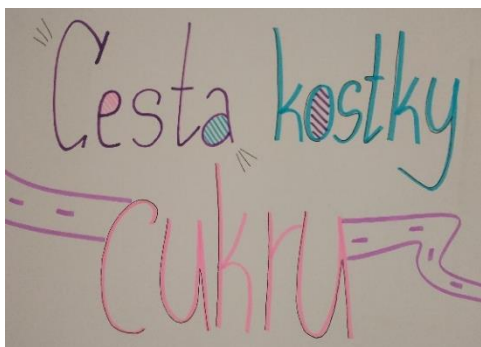 Cesta kostky
cukru